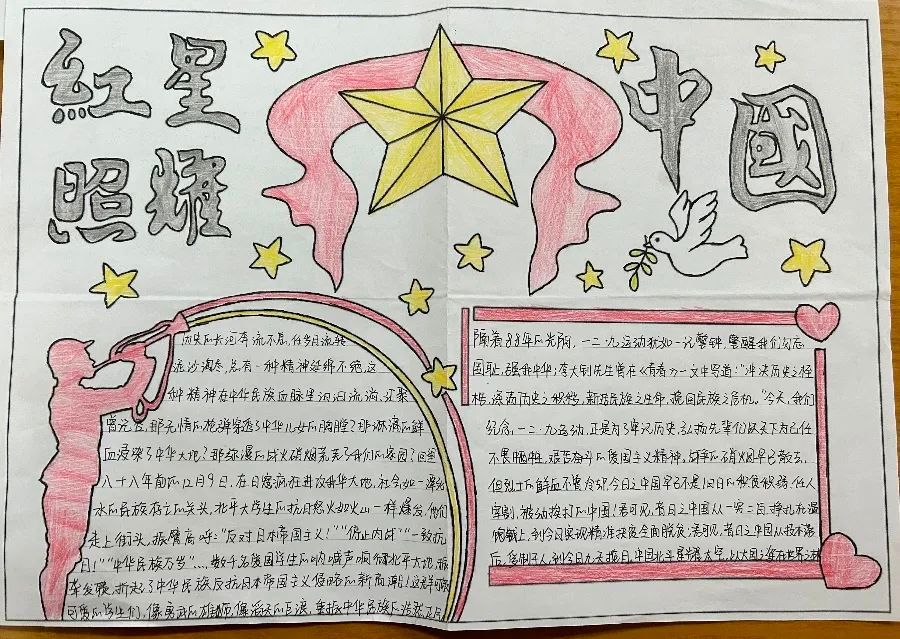 红星 中国
照耀
历史的长河奔流不息,任岁月流转
流沙漏尽,总有一种精神延绵不绝,这
种精神在中华民族血脉里汩汩流淌,还凝
曾记否,那无情的枪弹穿透了中华儿女的胸膛?那淋漓的鲜
血浸染了中华大地?那弥漫的战火硝烟笼罩了我们的家园?回望
八十八年前的12月9日,在日寇疯狂进攻我华大地,社会如一潭死
水的民族存亡的关头,北平大学生的抗日怒火如火山一样爆发,他们
走上街头,振臂高呼:“反对日本帝国主义!”“停止内战”“一致抗
日!”“中华民族万岁”…,数千名爱国学生的呐喊声响彻北平大地,振
聋发聩,掀起了中华民族反抗日本帝国主义侵略的新高潮!这群可敬
可爱的学生们,像勇武的雄狮,像滔天的巨浪,重振中华民族之浩然正风
隔着88年的光阴,一二·九运动犹如一记警钟,警醒我们勿忘
国耻,强我中华;李大钊先生曾在《青春》一文中写道:“冲决历史之桎
梏,涤荡历史之积秽,新造民族之生命,挽回民族之危机。”今天,我们
纪念一二·九运动,正是为了牢记历史,弘扬先辈们以天下为己任
不畏牺牲,艰苦奋斗的爱国主义精神,战争的硝烟早已散去,
但烈士的鲜血不曾食却,今日之中国早已不是旧日的积贫积弱,任人
宰割,被动挨打的中国!君可见,昔日之中国从一穷二白挣扎在温
饱线上,到今日实现精准扶贫全面脱贫;君可见,昔日之中国从技术落
后,受制于人,到今日九天揽月,中国北斗穿梭太空,以大国之姿在世界之林